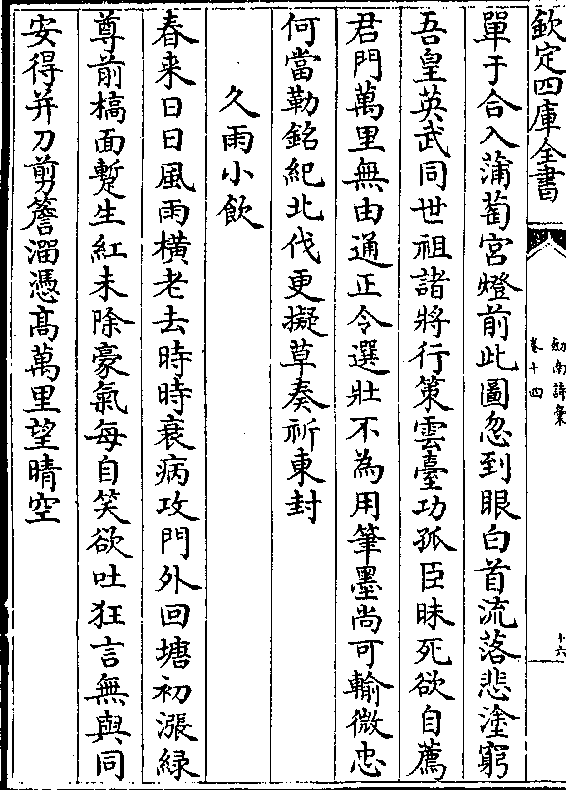 欽定四庫全書
劍南詩藁
卷十四
十六
單于合入蒲萄宮燈前此圖忽到眼白首流落悲塗窮
吾皇英武同世祖諸將行策雲臺功孤臣昧死欲自薦
君門萬里無由通正令選壯不為用筆墨尚可輸微忠
何當勒銘紀北伐更擬草奏祈東封
久雨小飲
春来日日風雨橫老去時時衰病攻門外回塘初漲緑
尊前槁面蹔生紅未除豪氣每自笑欲吐狂言無與同
安得并刀剪簷溜憑髙萬里望晴空